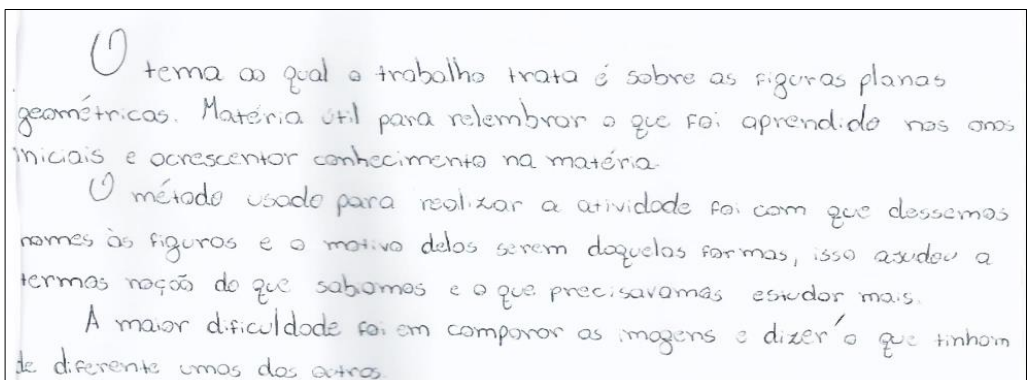 O tema ao qual o trabalho trata é sobre as figuras planas
geométricas. Matéria útil para relembrar o que foi aprendido nos anos
iniciais e acrescentar conhecimento na matéria.
O método usado para realizar a atividade foi com que dessemos
nomes às figuras e o motivo delas serem daquelas formas, isso ajudou a
termos noção do que sabiamos e o que precisavamos estudar mais.
A maior dificuldade foi em comparar as imagens e dizer o que tinham
de diferente umas das outras.